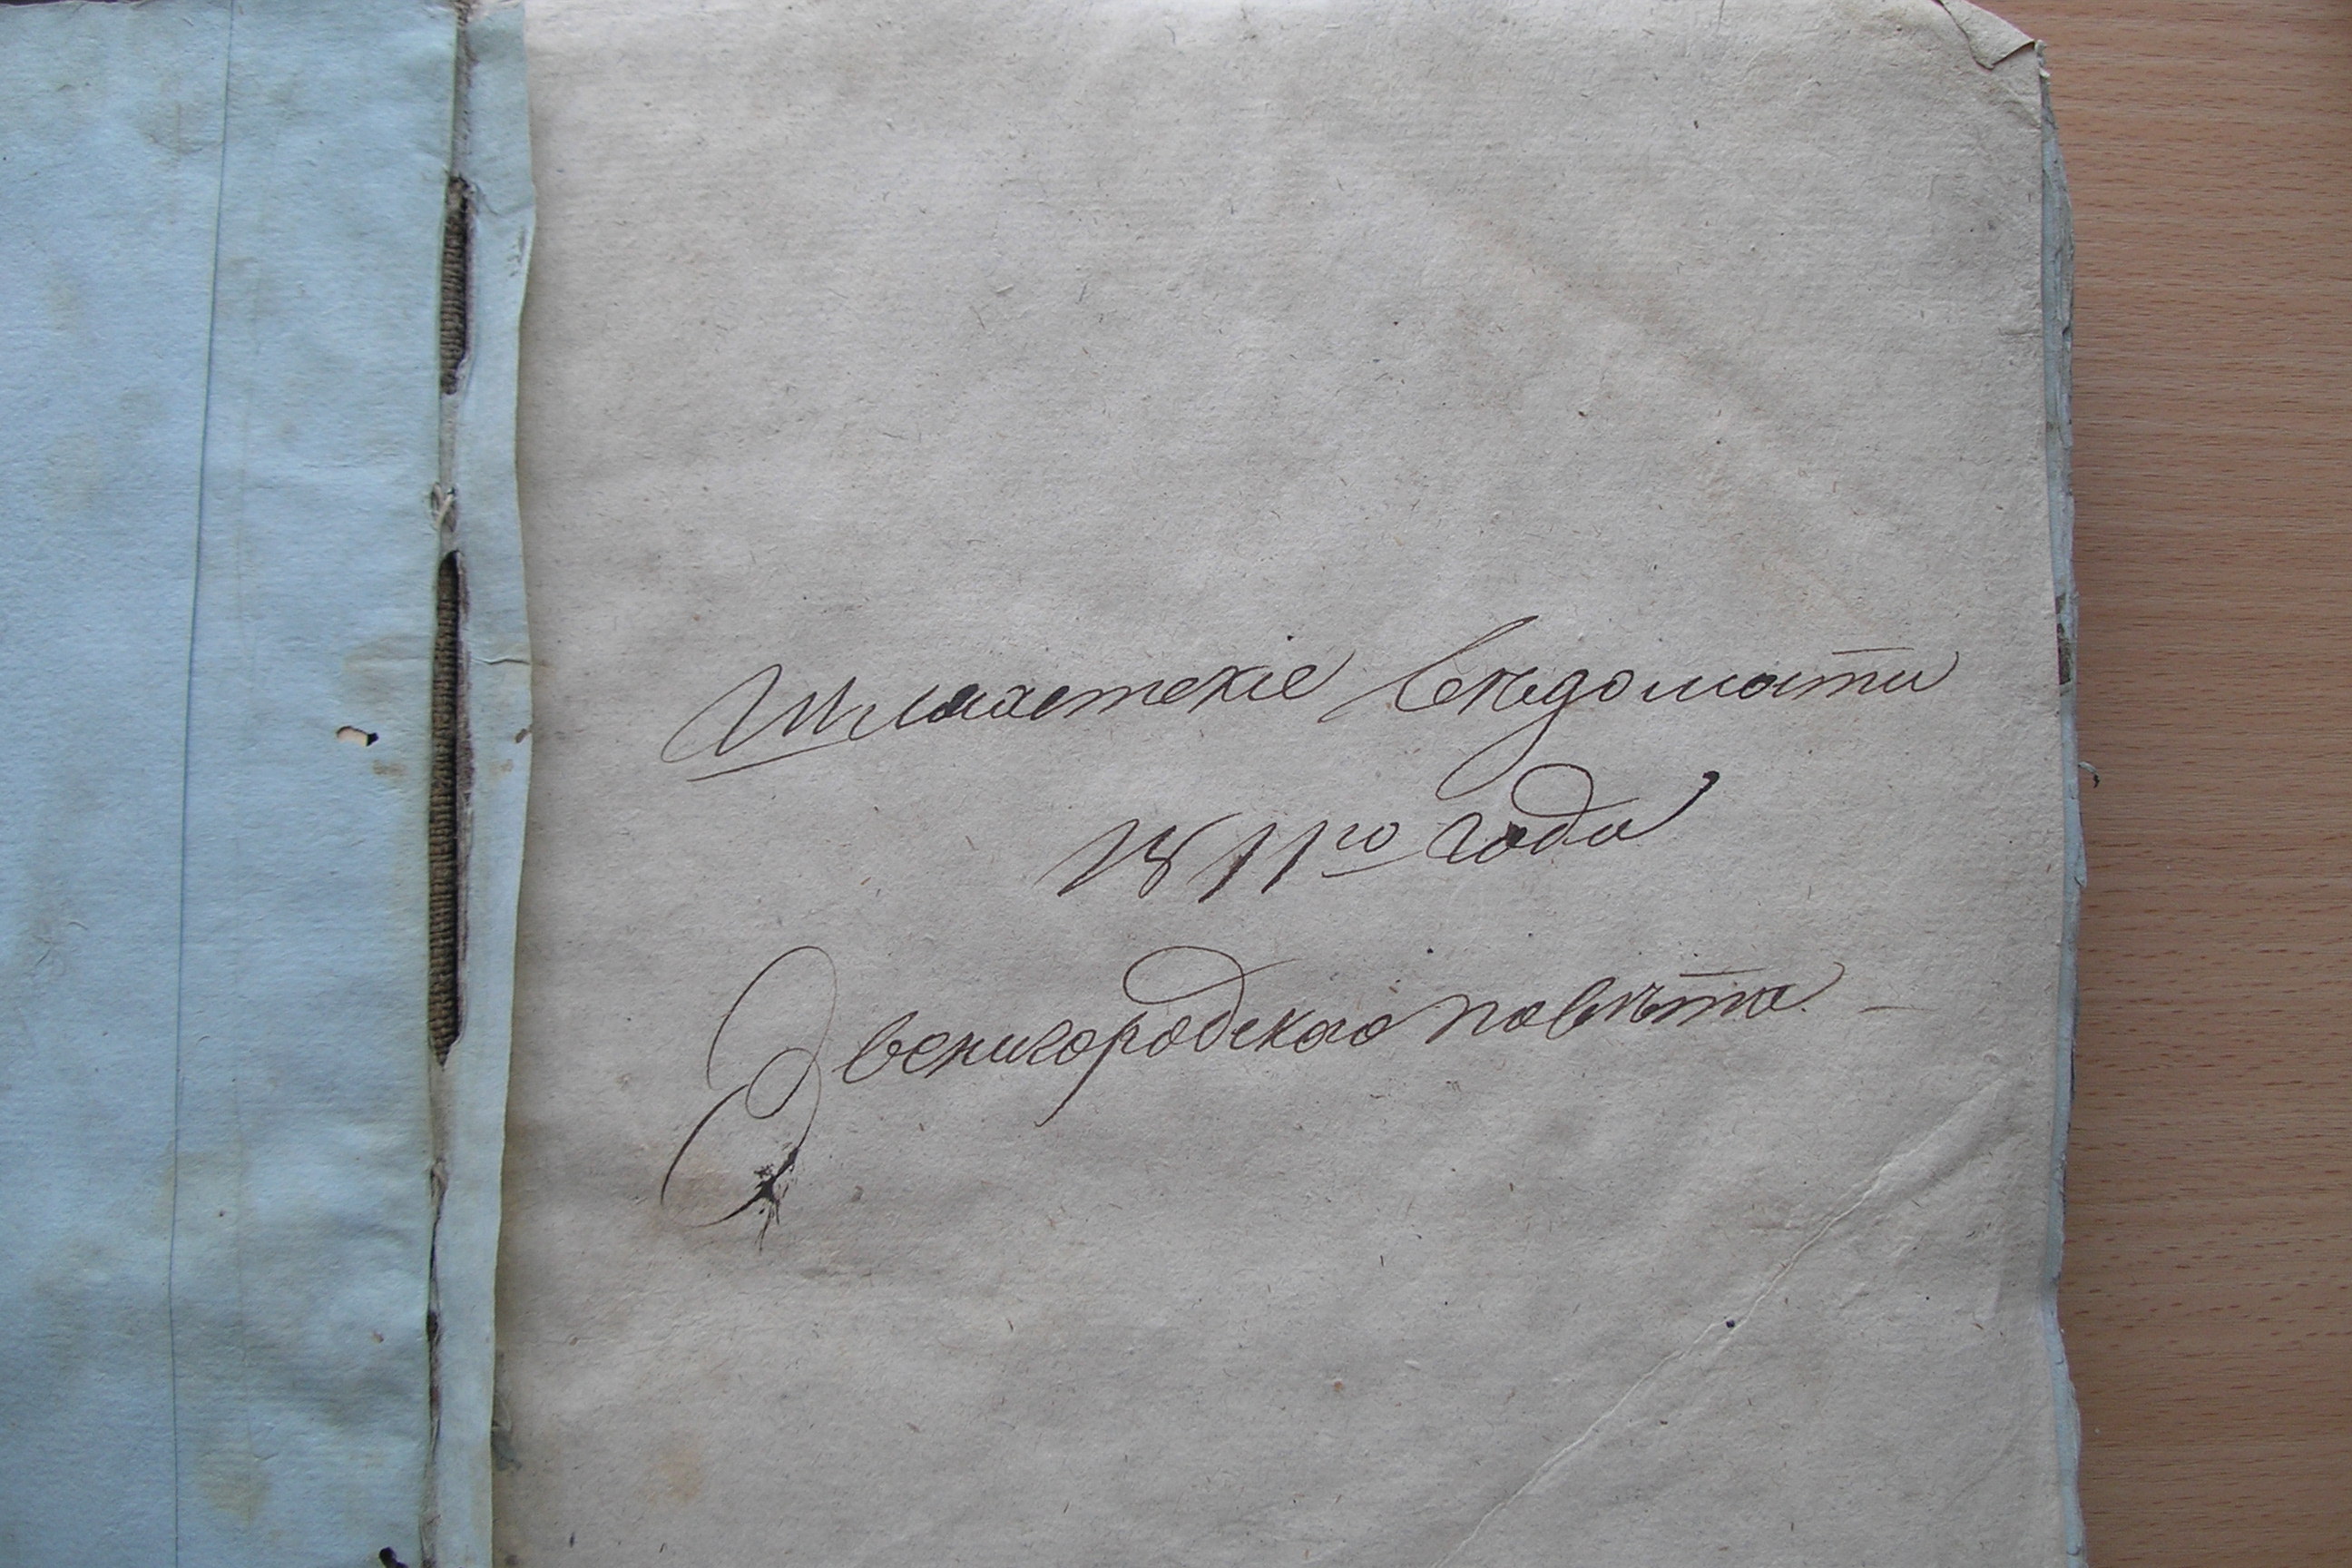 Шляхетскіе Вѣдомости
1811го года
Звенигородскаго повѣта.